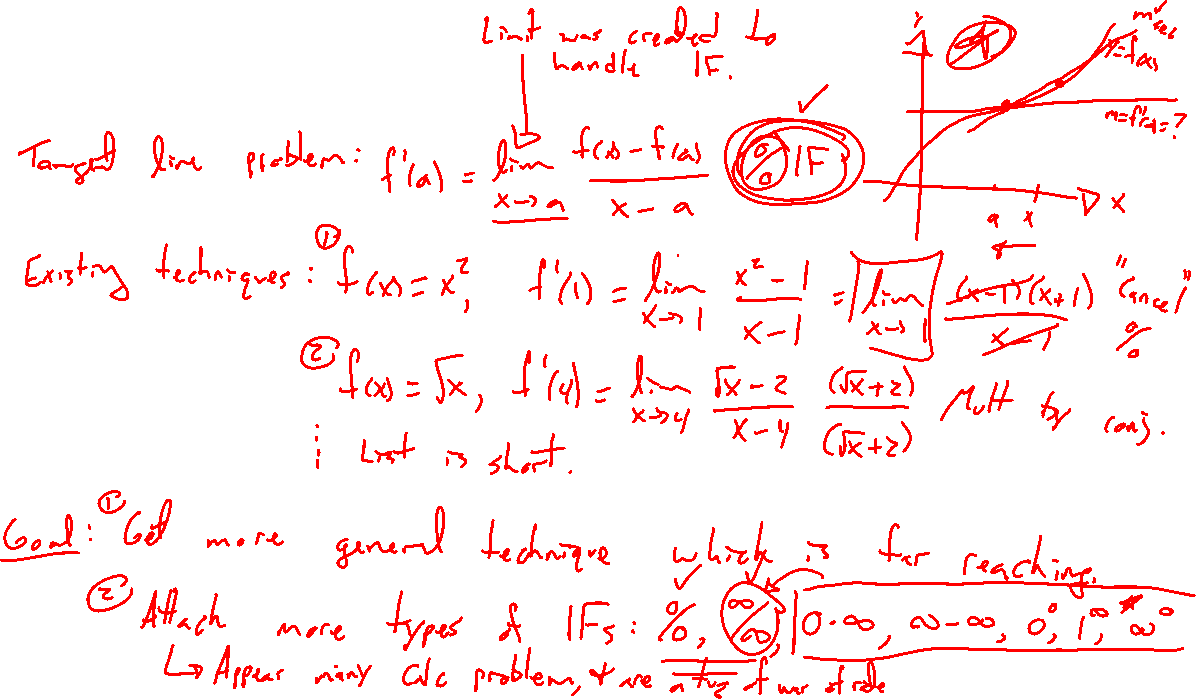 Limit was created to
handle IF.
y
m sec
y=f(x)
m=f'(a)=?
a x
x
Tangent line problem: f'(a) = lim x→a (f(x)-f(a))/(x-a) 0/0 IF
Existing techniques: ① f(x)=x², f'(1) = lim x→1 (x²-1)/(x-1) = lim x→1 (x-1)(x+1)/(x-1) "Cancel" 0/0
② f(x)=√x, f'(4) = lim x→4 (√x-2)/(x-4) (√x+2)/(√x+2) Mult by conj.
⋮ List is short.
Goal: ① Get more general technique which is far reaching.
② Attack more types of IFs: 0/0, ∞/∞, 0·∞, ∞-∞, 0⁰, 1^∞, ∞⁰
↳ Appear many Calc problem, & are a tug of war of rate